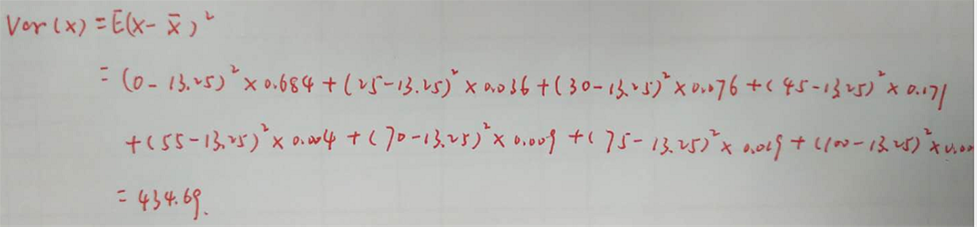 Var(x) = E(x - x̄)²
= (0 - 13.25)² × 0.684 + (25 - 13.25)² × 0.036 + (30 - 13.25)² × 0.076 + (45 - 13.25)² × 0.171
+ (55 - 13.25)² × 0.004 + (70 - 13.25)² × 0.009 + (75 - 13.25)² × 0.019 + (100 - 13.25)² × 0.00
= 434.69.